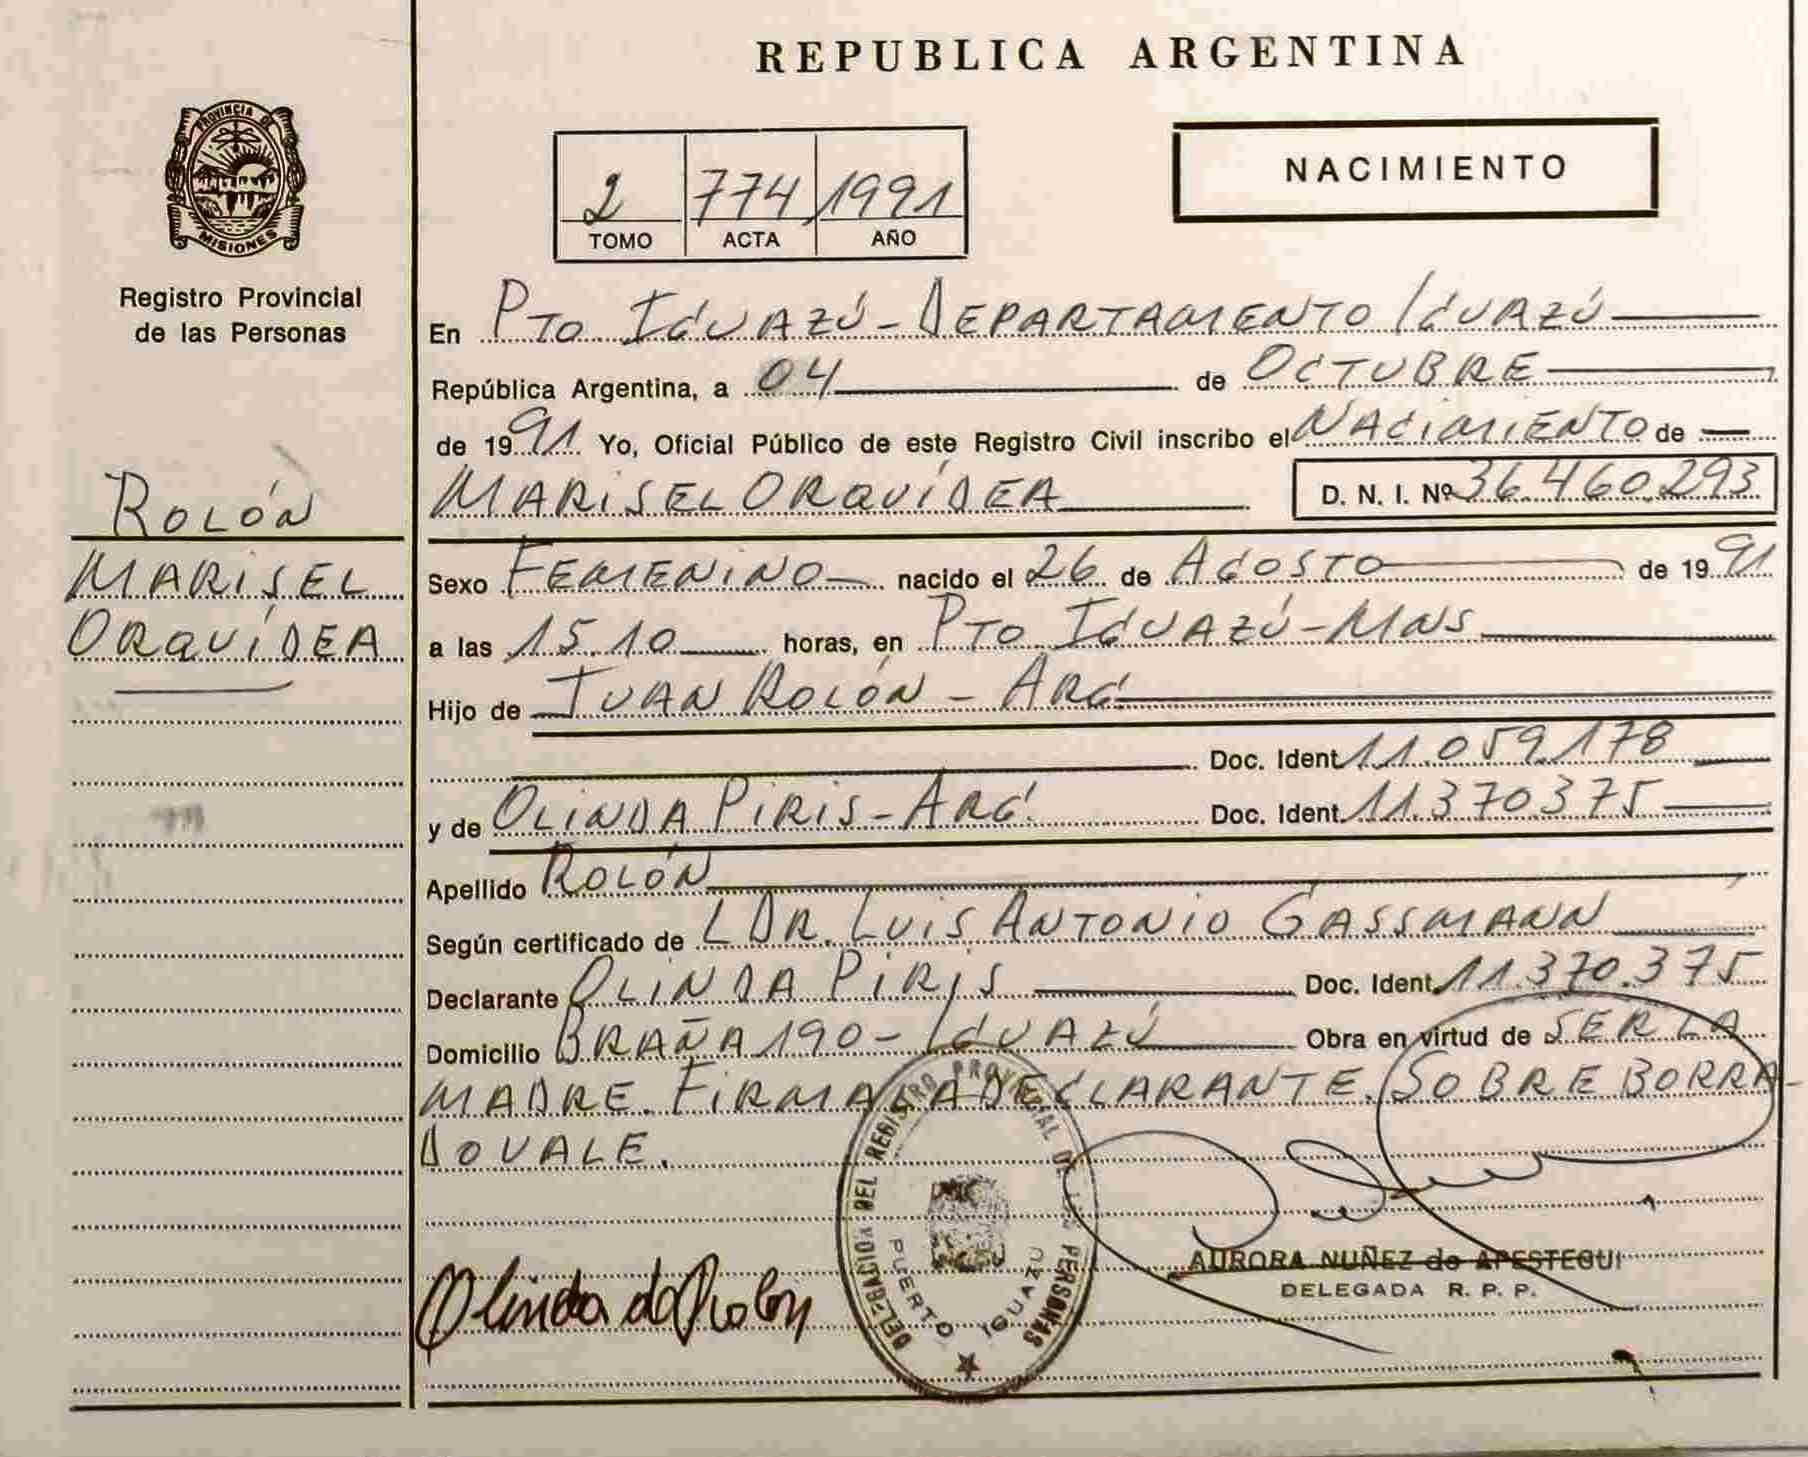 REPUBLICA ARGENTINA
PROVINCIA DE
MISIONES
Registro Provincial
de las Personas
NACIMIENTO
2 774 1991
TOMO ACTA AÑO
En PTO IGUAZÚ - DEPARTAMENTO IGUAZÚ
República Argentina, a 04 de OCTUBRE
de 1991 Yo, Oficial Público de este Registro Civil inscribo el NACIMIENTO de
MARISEL ORQUÍDEA D. N. I. Nº 36.460.293
ROLÓN
MARISEL
ORQUÍDEA
Sexo FEMENINO nacido el 26 de AGOSTO de 1991
a las 15.10 horas, en PTO IGUAZÚ - MNS
Hijo de JUAN ROLÓN - ARG.
Doc. Ident 11.059.178
y de OLINDA PIRIS - ARG. Doc. Ident. 11.370.375
Apellido ROLÓN
Según certificado de L DR. LUIS ANTONIO GASSMANN
Declarante OLINDA PIRIS Doc. Ident. 11.370.375
Domicilio BRAÑA 190 - IGUAZÚ Obra en virtud de SER LA
MADRE. FIRMA LA DECLARANTE. SOBRE BORRA-
DO VALE.
DELEGACION DEL REGISTRO PROVINCIAL DE LAS PERSONAS
PUERTO IGUAZU
Olinda de Rolon
AURORA NUÑEZ de APESTEGUI
DELEGADA R. P. P.